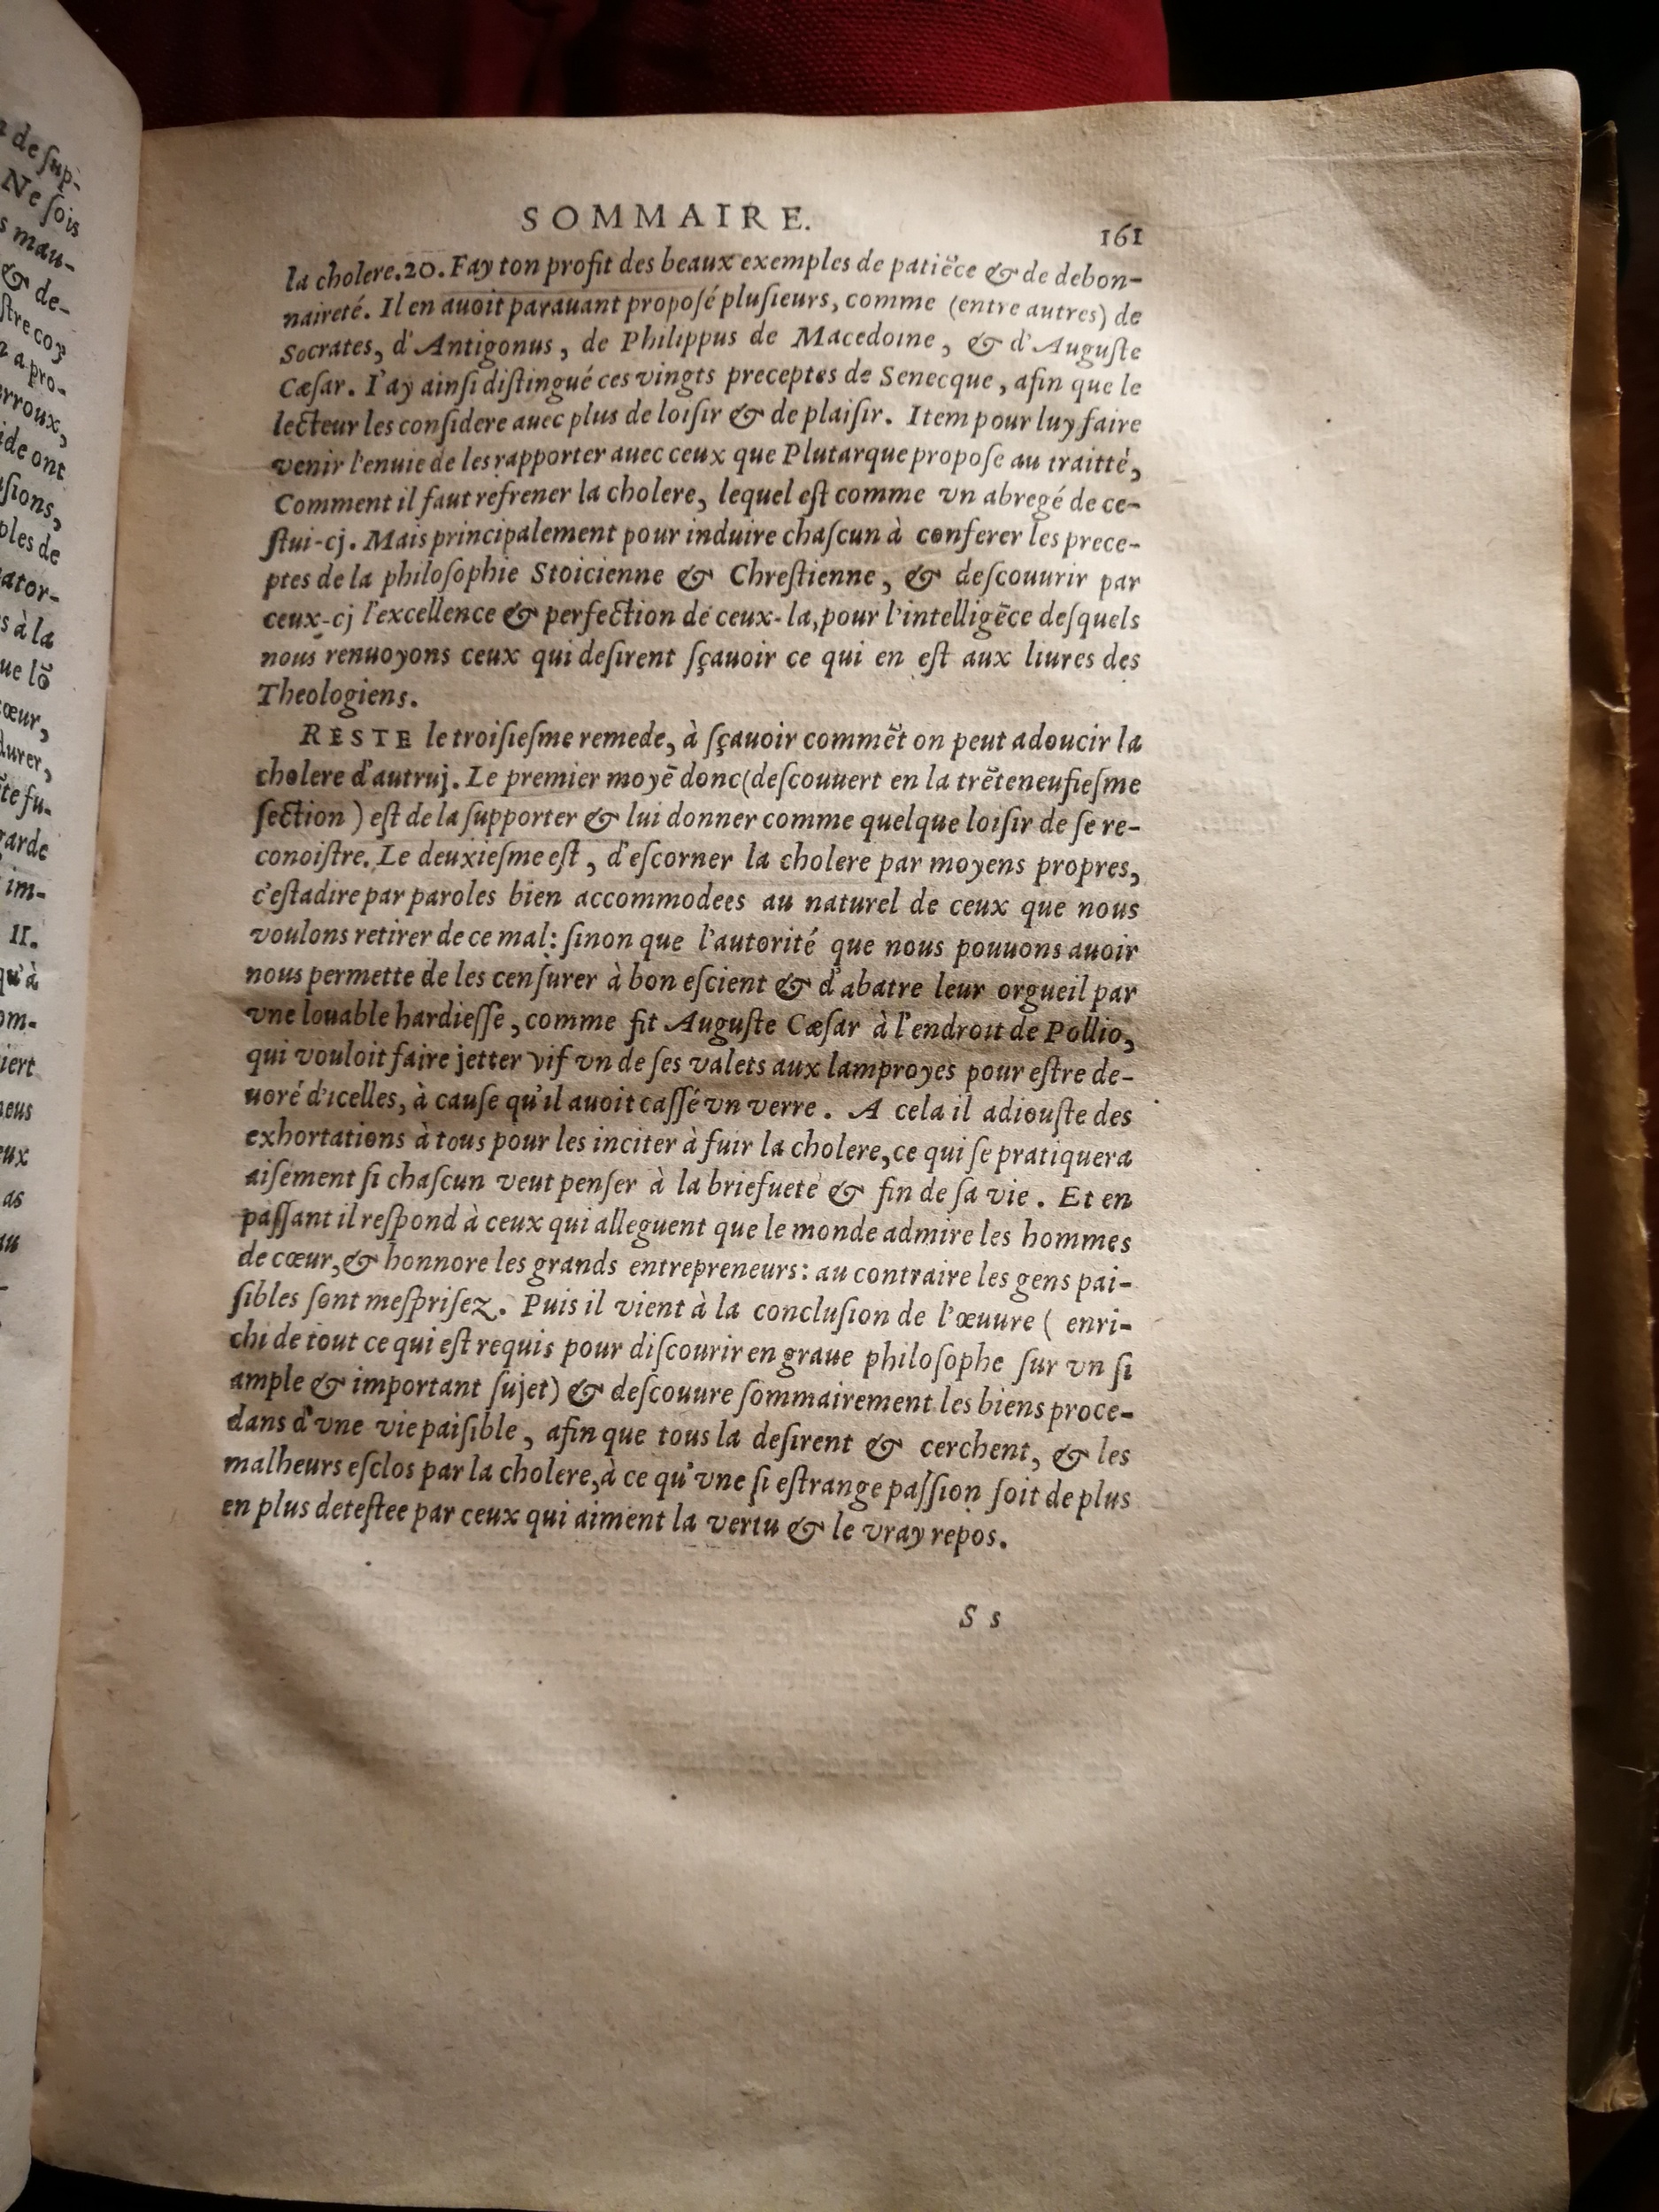 a de sup-
Ne sois
s mau-
& de-
stre coy
a pro-
rroux,
ide ont
sions,
ples de
ator-
s à la
ue lõ
cœur,
durer,
te fu-
arde
im-
II.
qu'à
om-
iert
neus
eux
as
au
SOMMAIRE. 161
la cholere. 20. Fay ton profit des beaux exemples de patiẽce & de debon-
naireté. Il en auoit parauant proposé plusieurs, comme (entre autres) de
Socrates, d'Antigonus, de Philippus de Macedoine, & d'Auguste
Cæsar. I'ay ainsi distingué ces vingts preceptes de Senecque, afin que le
lecteur les considere auec plus de loisir & de plaisir. Item pour luy faire
venir l'enuie de les rapporter auec ceux que Plutarque propose au traitté,
Comment il faut refrener la cholere, lequel est comme vn abregé de ce-
stui-cj. Mais principalement pour induire chascun à conferer les prece-
ptes de la philosophie Stoicienne & Chrestienne, & descouurir par
ceux-cj l'excellence & perfection de ceux-la, pour l'intelligẽce desquels
nous renuoyons ceux qui desirent sçauoir ce qui en est aux liures des
Theologiens.
RESTE le troisiesme remede, à sçauoir commẽt on peut adoucir la
cholere d'autruj. Le premier moyẽ donc (descouuert en la trẽteneufiesme
section) est de la supporter & lui donner comme quelque loisir de se re-
conoistre. Le deuxiesme est, d'escorner la cholere par moyens propres,
c'estadire par paroles bien accommodees au naturel de ceux que nous
voulons retirer de ce mal: sinon que l'autorité que nous pouuons auoir
nous permette de les censurer à bon escient & d'abatre leur orgueil par
vne louable hardiesse, comme fit Auguste Cæsar à l'endroit de Pollio,
qui vouloit faire jetter vif vn de ses valets aux lamproyes pour estre de-
uoré d'icelles, à cause qu'il auoit cassé vn verre. A cela il adiouste des
exhortations à tous pour les inciter à fuir la cholere, ce qui se pratiquera
aisement si chascun veut penser à la briefueté & fin de sa vie. Et en
passant il respond à ceux qui alleguent que le monde admire les hommes
de cœur, & honnore les grands entrepreneurs: au contraire les gens pai-
sibles sont mesprisez. Puis il vient à la conclusion de l'œuure (enri-
chi de tout ce qui est requis pour discourir en graue philosophe sur vn si
ample & important sujet) & descouure sommairement les biens proce-
dans d'vne vie paisible, afin que tous la desirent & cerchent, & les
malheurs esclos par la cholere, à ce qu'vne si estrange passion soit de plus
en plus detestee par ceux qui aiment la vertu & le vray repos.
S s